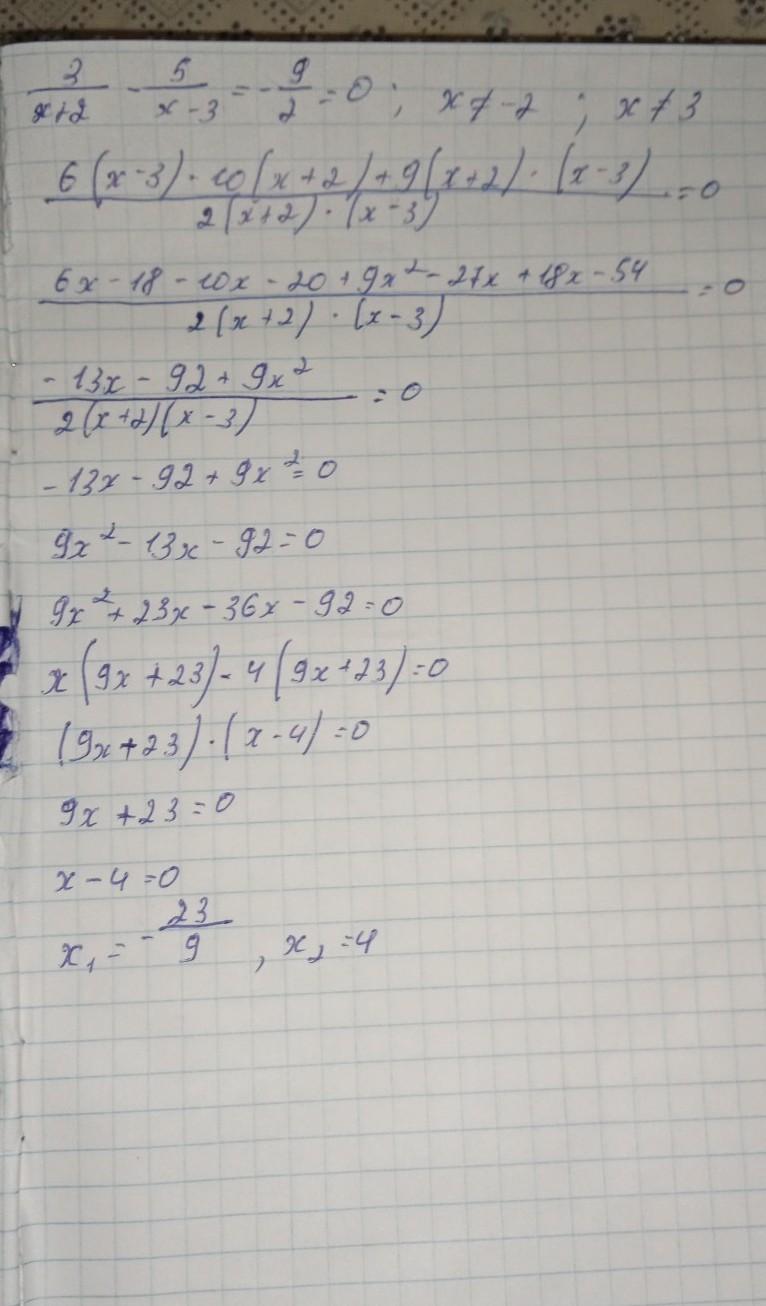 3/(x+2) - 5/(x-3) = -9/2 = 0 ; x ≠ -2 ; x ≠ 3
6(x-3) - 10(x+2) + 9(x+2) · (x-3) / 2(x+2) · (x-3) = 0
6x - 18 - 10x - 20 + 9x² - 27x + 18x - 54 / 2(x+2) · (x-3) = 0
-13x - 92 + 9x² / 2(x+2)(x-3) = 0
-13x - 92 + 9x² = 0
9x² - 13x - 92 = 0
9x² + 23x - 36x - 92 = 0
x(9x+23) - 4(9x+23) = 0
(9x+23) · (x-4) = 0
9x + 23 = 0
x - 4 = 0
x₁ = -23/9 , x₂ = 4